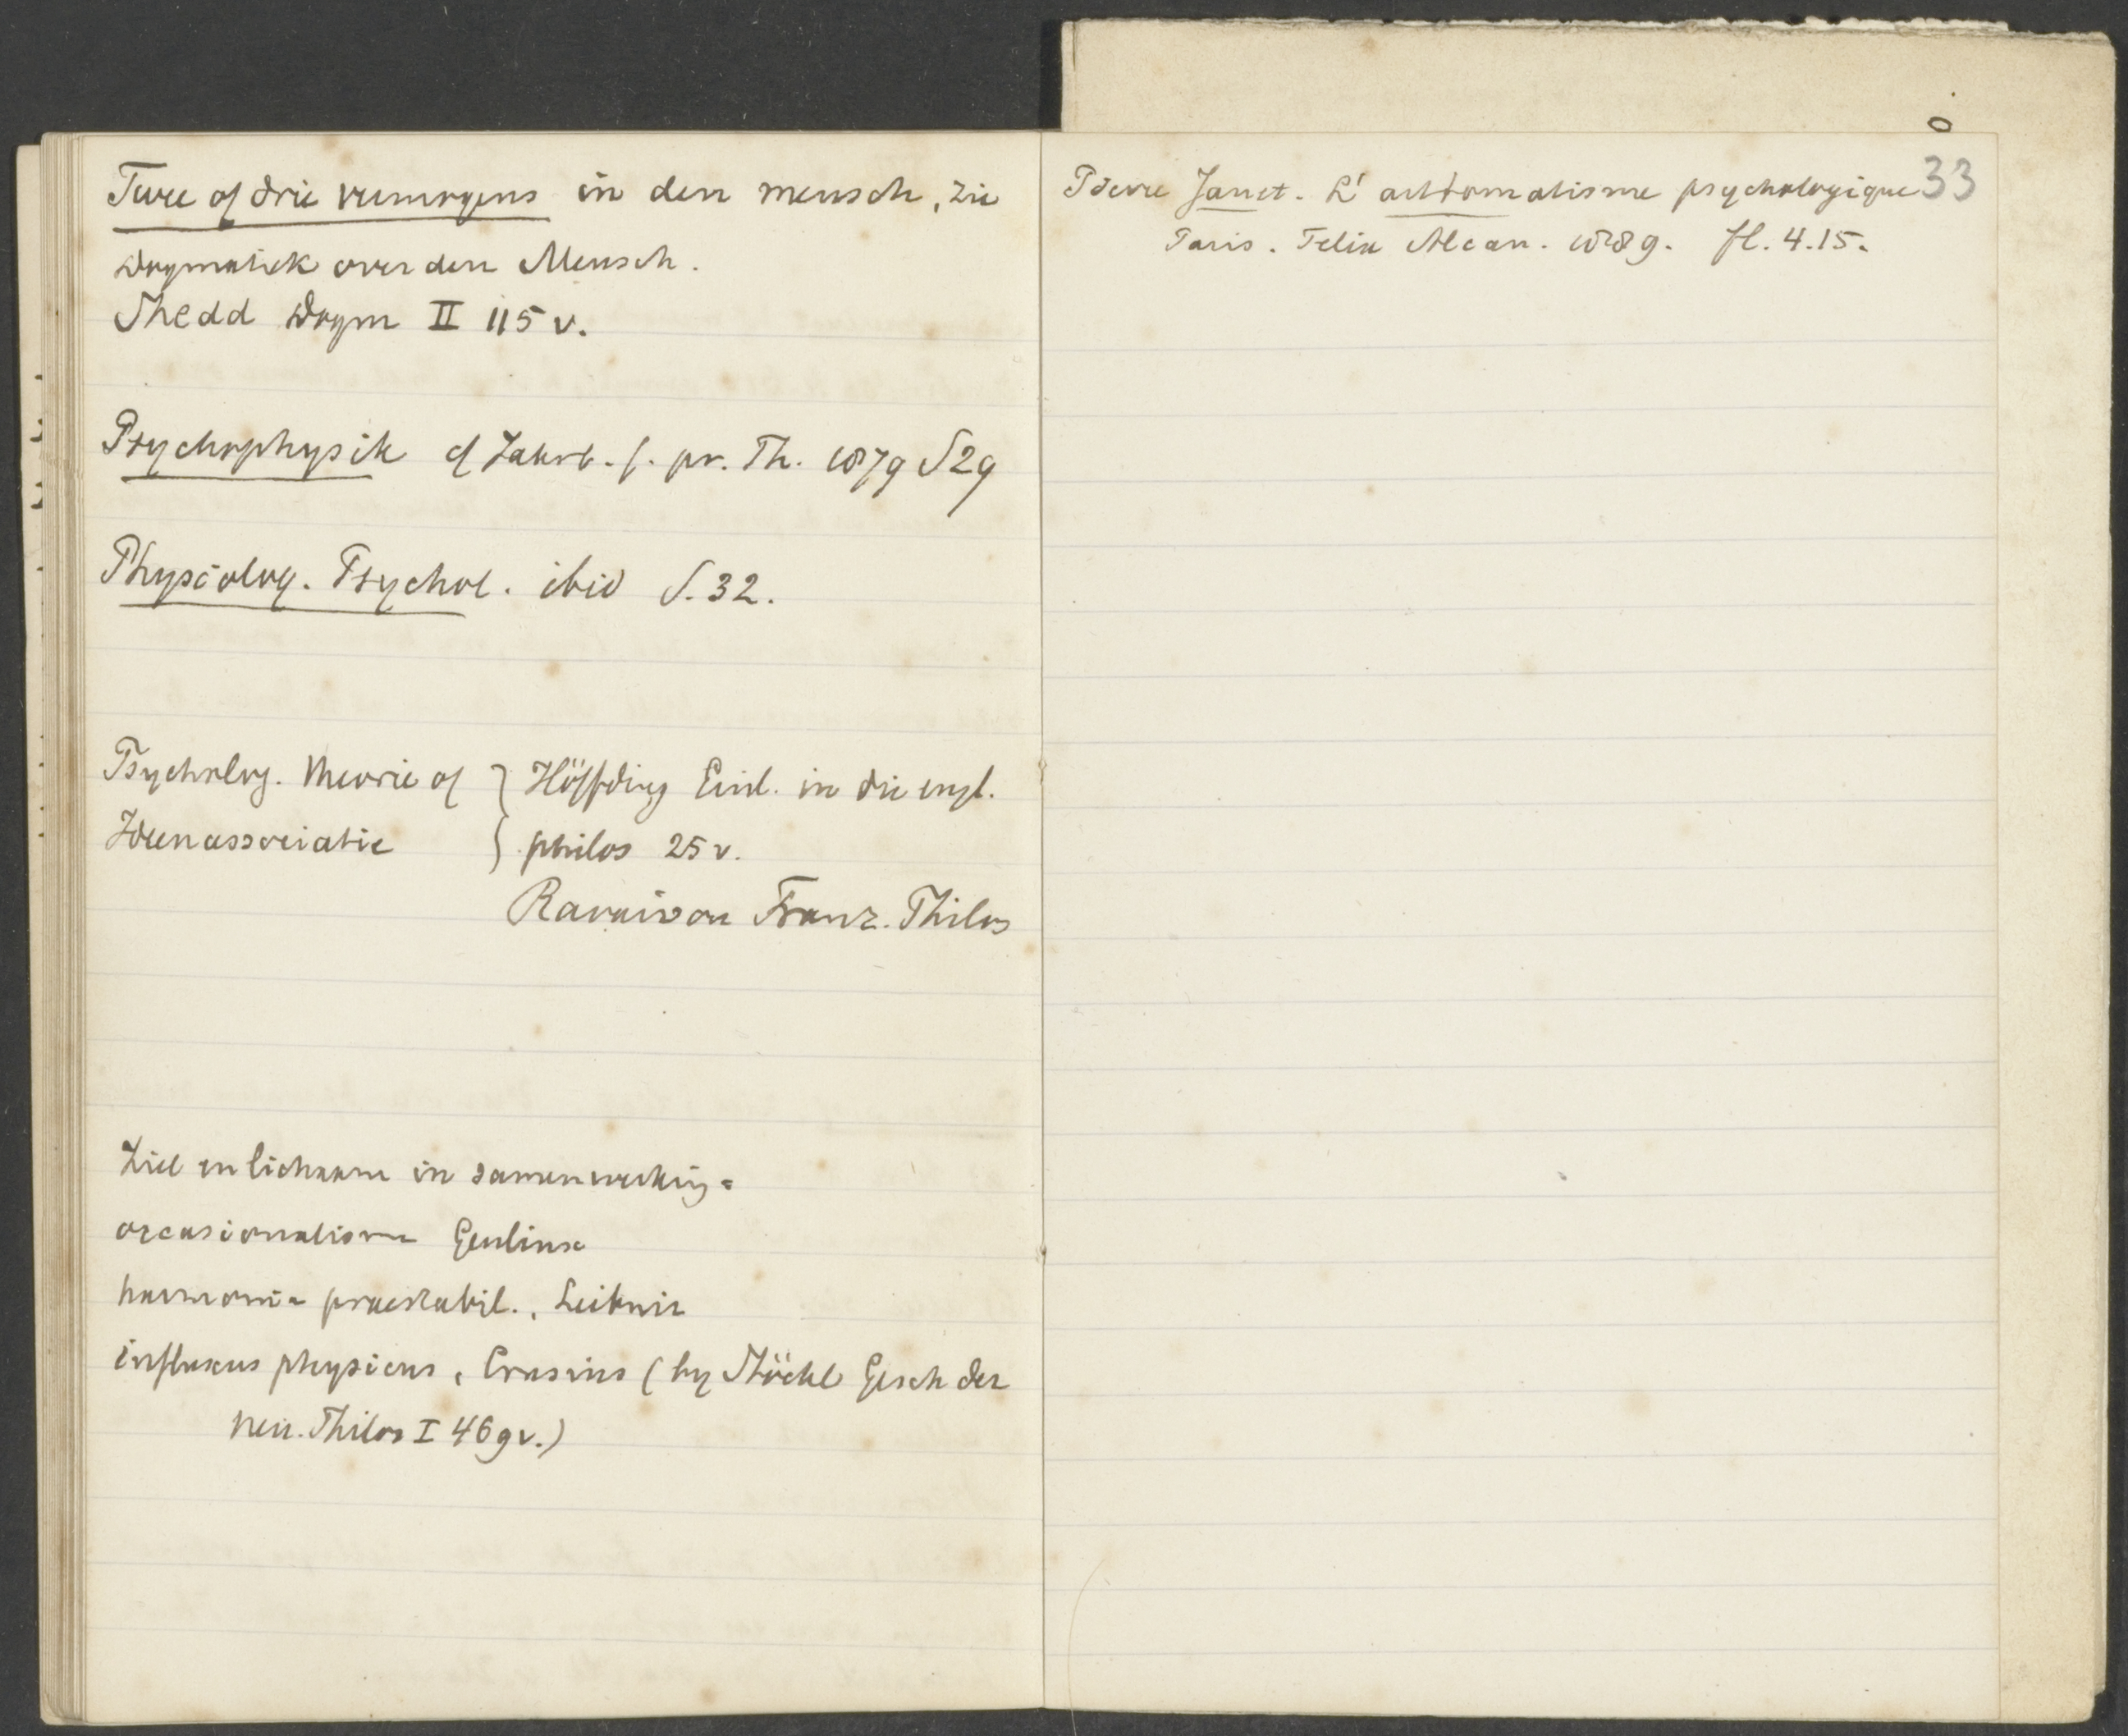 Twee of drie vermogens in den mensch, zie
Dogmatiek over den Mensch.
Shedd Dogm II 115 v.
Psychophysik cf Jahrb. f. pr. Th. 1879 S 29
Physiolog. Psychol. ibid S. 32.
Psycholog. theorie of } Höffding Einl. in die engl.
Ideenassociatie } philos 25 v.
Ravaisson Franz. Philos
Ziel en lichaam in samenwerking =
occasionalism Geulinx
harmonia praestabil., Leibniz
influxus physicus, Crusius (by Stöckl Gesch der
neu. Philos I 469 v.)
33
Pierre Janet. L'automatisme psychologique
Paris. Felix Alcan. 1889. fl. 4.15.